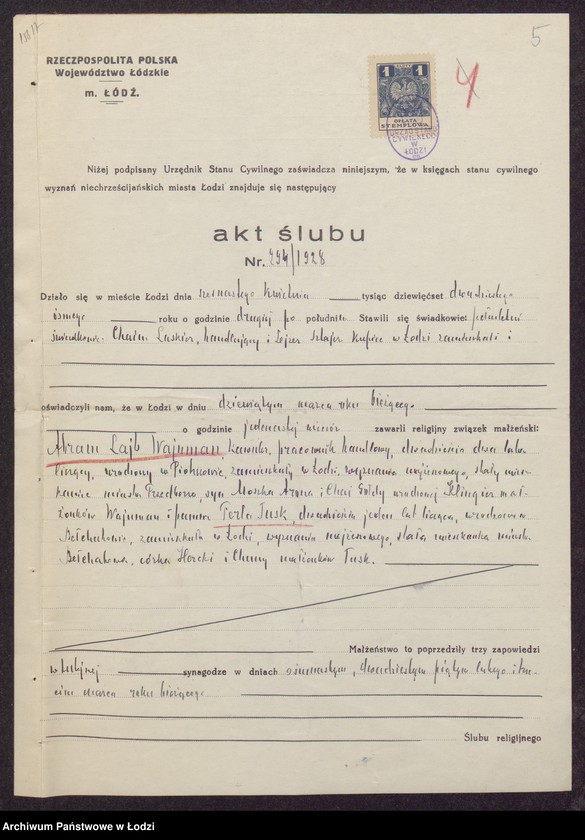 5
RZECZPOSPOLITA POLSKA
Województwo Łódzkie
m. ŁÓDŹ.
1 ZŁOTY 1
OPŁATA STEMPLOWA
URZĄD STANU CYWILNEGO W ŁODZI
4
Niżej podpisany Urzędnik Stanu Cywilnego zaświadcza niniejszym, że w księgach stanu cywilnego
wyznań niechrześcijańskich miasta Łodzi znajduje się następujący
akt ślubu
Nr. 294/1928
Działo się w mieście Łodzi dnia szesnastego kwietnia tysiąc dziewięćset dwudziestego
ósmego roku o godzinie drugiej po południu Stawili się świadkowie: pełnoletni
świadkowie: Chaim Laskier, handlujący i Lejzer Sztajer kupiec w Łodzi zamieszkali i
oświadczyli nam, że w Łodzi w dniu dziewiątym marca roku bieżącego
o godzinie jedenastej wieczór zawarli religijny związek małżeński:
Abram Lajb Wajnman, kawaler, pracownik handlowy, dwadzieścia dwa lata
liczący, urodzony w Piotrkowie, zamieszkały w Łodzi, wyznania mojżeszowego, stały mieszkaniec
miasta Przedborza, syn Moszka Arona i Chai Gołdy urodzonej Klingier
małżonków Wajnman i panna Perla Tusk, dwadzieścia jeden lat licząca, urodzona w
Bełchatowie, zamieszkała w Łodzi, wyznania mojżeszowego, stała mieszkanka miasta
Bełchatowa, córka Herszki i Chumy małżonków Tusk.
Małżeństwo to poprzedziły trzy zapowiedzi
w tutejszej synagodze w dniach osiemnastym, dwudziestym piątym lutego i trzecim
marca roku bieżącego
Ślubu religijnego
Archiwum Państwowe w Łodzi